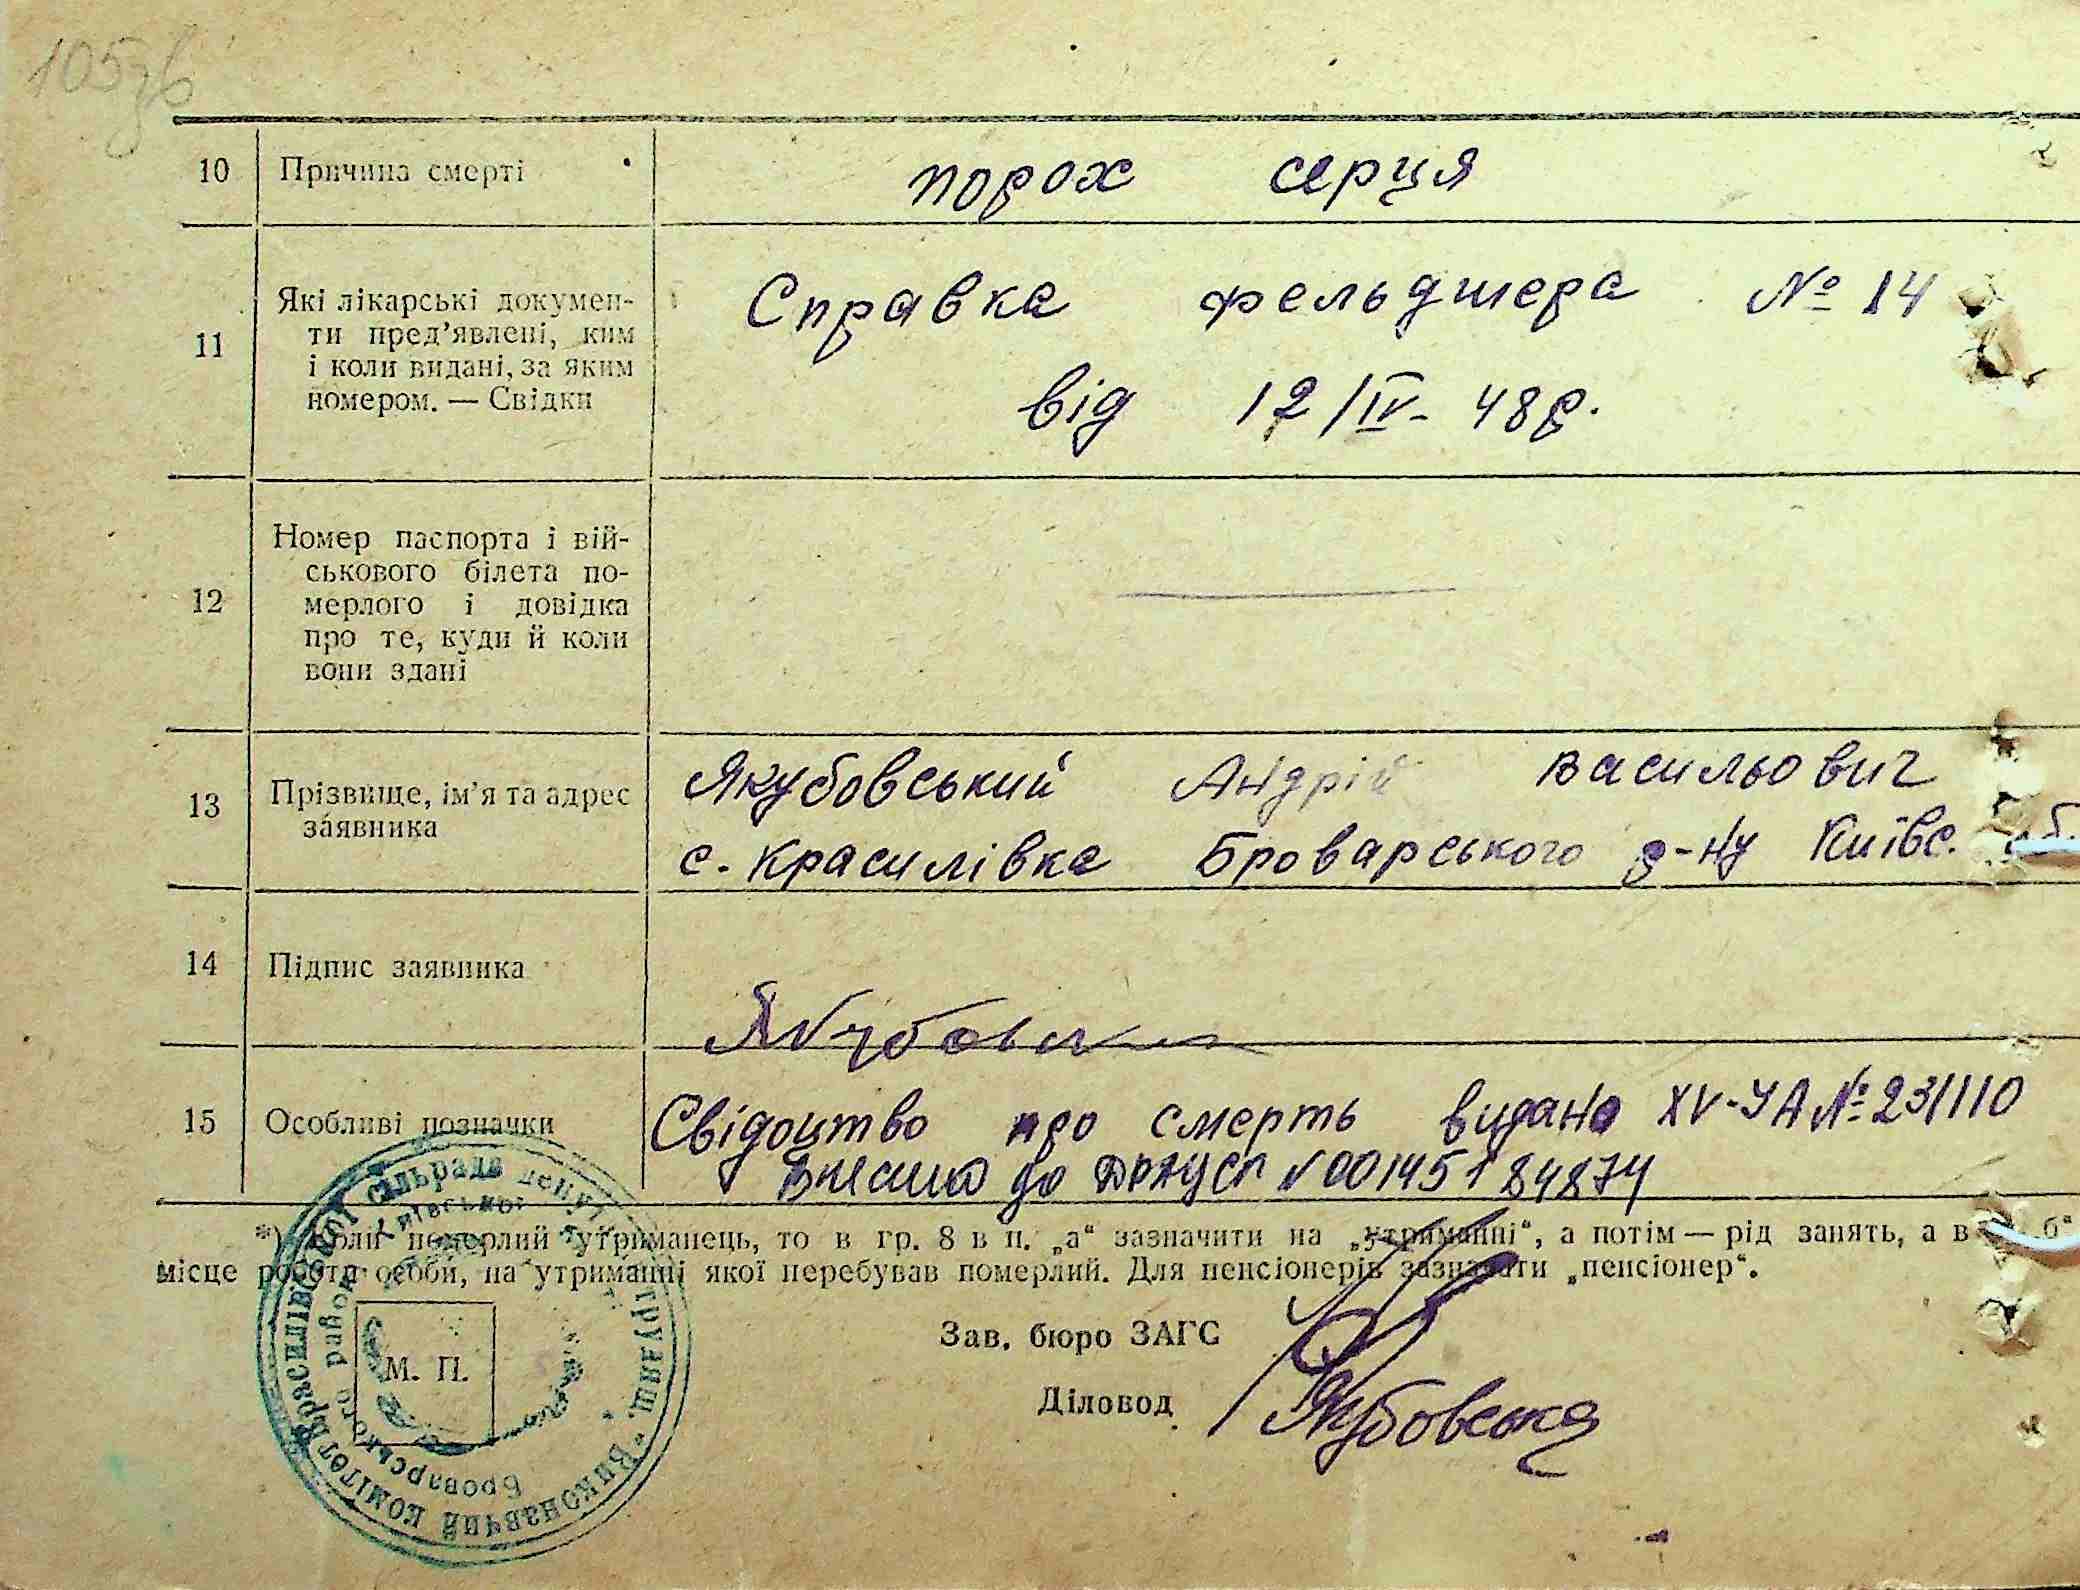 105зв
10 Причина смерті порох серця
11 Які лікарські докумен-
ти пред'явлені, ким
і коли видані, за яким
номером. — Свідки
Справка фельдшера № 14
від 12/IV- 48р.
12 Номер паспорта і вій-
ськового білета по-
мерлого і довідка
про те, куди й коли
вони здані
13 Прізвище, ім'я та адрес
заявника
Якубовський Андрій Васильович
с. Красилівка Броварського р-ну Київс. об.
14 Підпис заявника
15 Особливі позначки
Свідоцтво про смерть видано XV-УА № 231110
Внесено до ДРАЦСГ N 00145184874
*) Коли померлий утриманець, то в гр. 8 в п. „а“ зазначити на „утриманні“, а потім — рід занять, а в „б“
місце роботи особи, на утриманні якої перебував померлий. Для пенсіонерів зазначати „пенсіонер“.
Зав. бюро ЗАГС
М. П.
Діловод Якубовська
Виконавчий комітет Красилівської сільради депут. трудящ.
Броварського району Київської